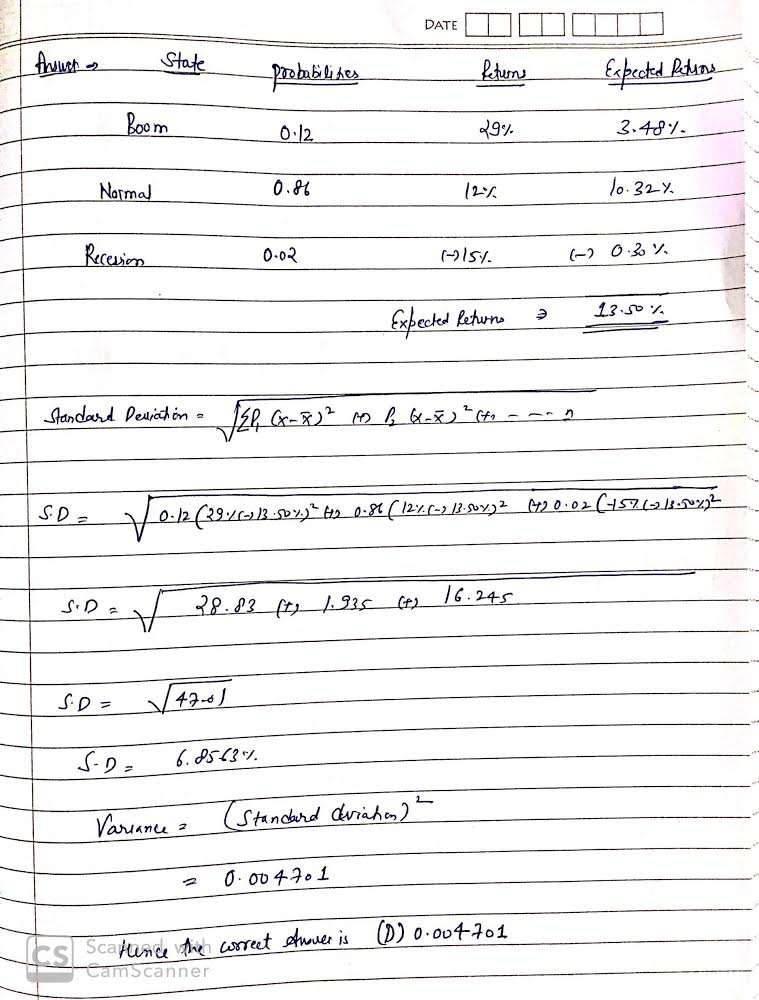 DATE
Answer → State probabilities Returns Expected Returns
Boom 0.12 29% 3.48%
Normal 0.86 12% 10.32%
Recession 0.02 (-)15% (-) 0.30%
Expected Returns ⇒ 13.50%
Standard Deviation = √ΣP₁ (x-x̄)² (+) P₂ (x-x̄)² (+ - - -- n
S.D = √0.12(29%(-)13.50%)² (+) 0.86(12%(-)13.50%)² (+) 0.02(-15%(-)13.50%)²
S.D = √28.83 (+) 1.935 (+) 16.245
S.D = √47.01
S.D = 6.8563%
Variance = (Standard deviation)²
= 0.004701
Hence the correct Answer is (D) 0.004701
CS Scanned with
CamScanner